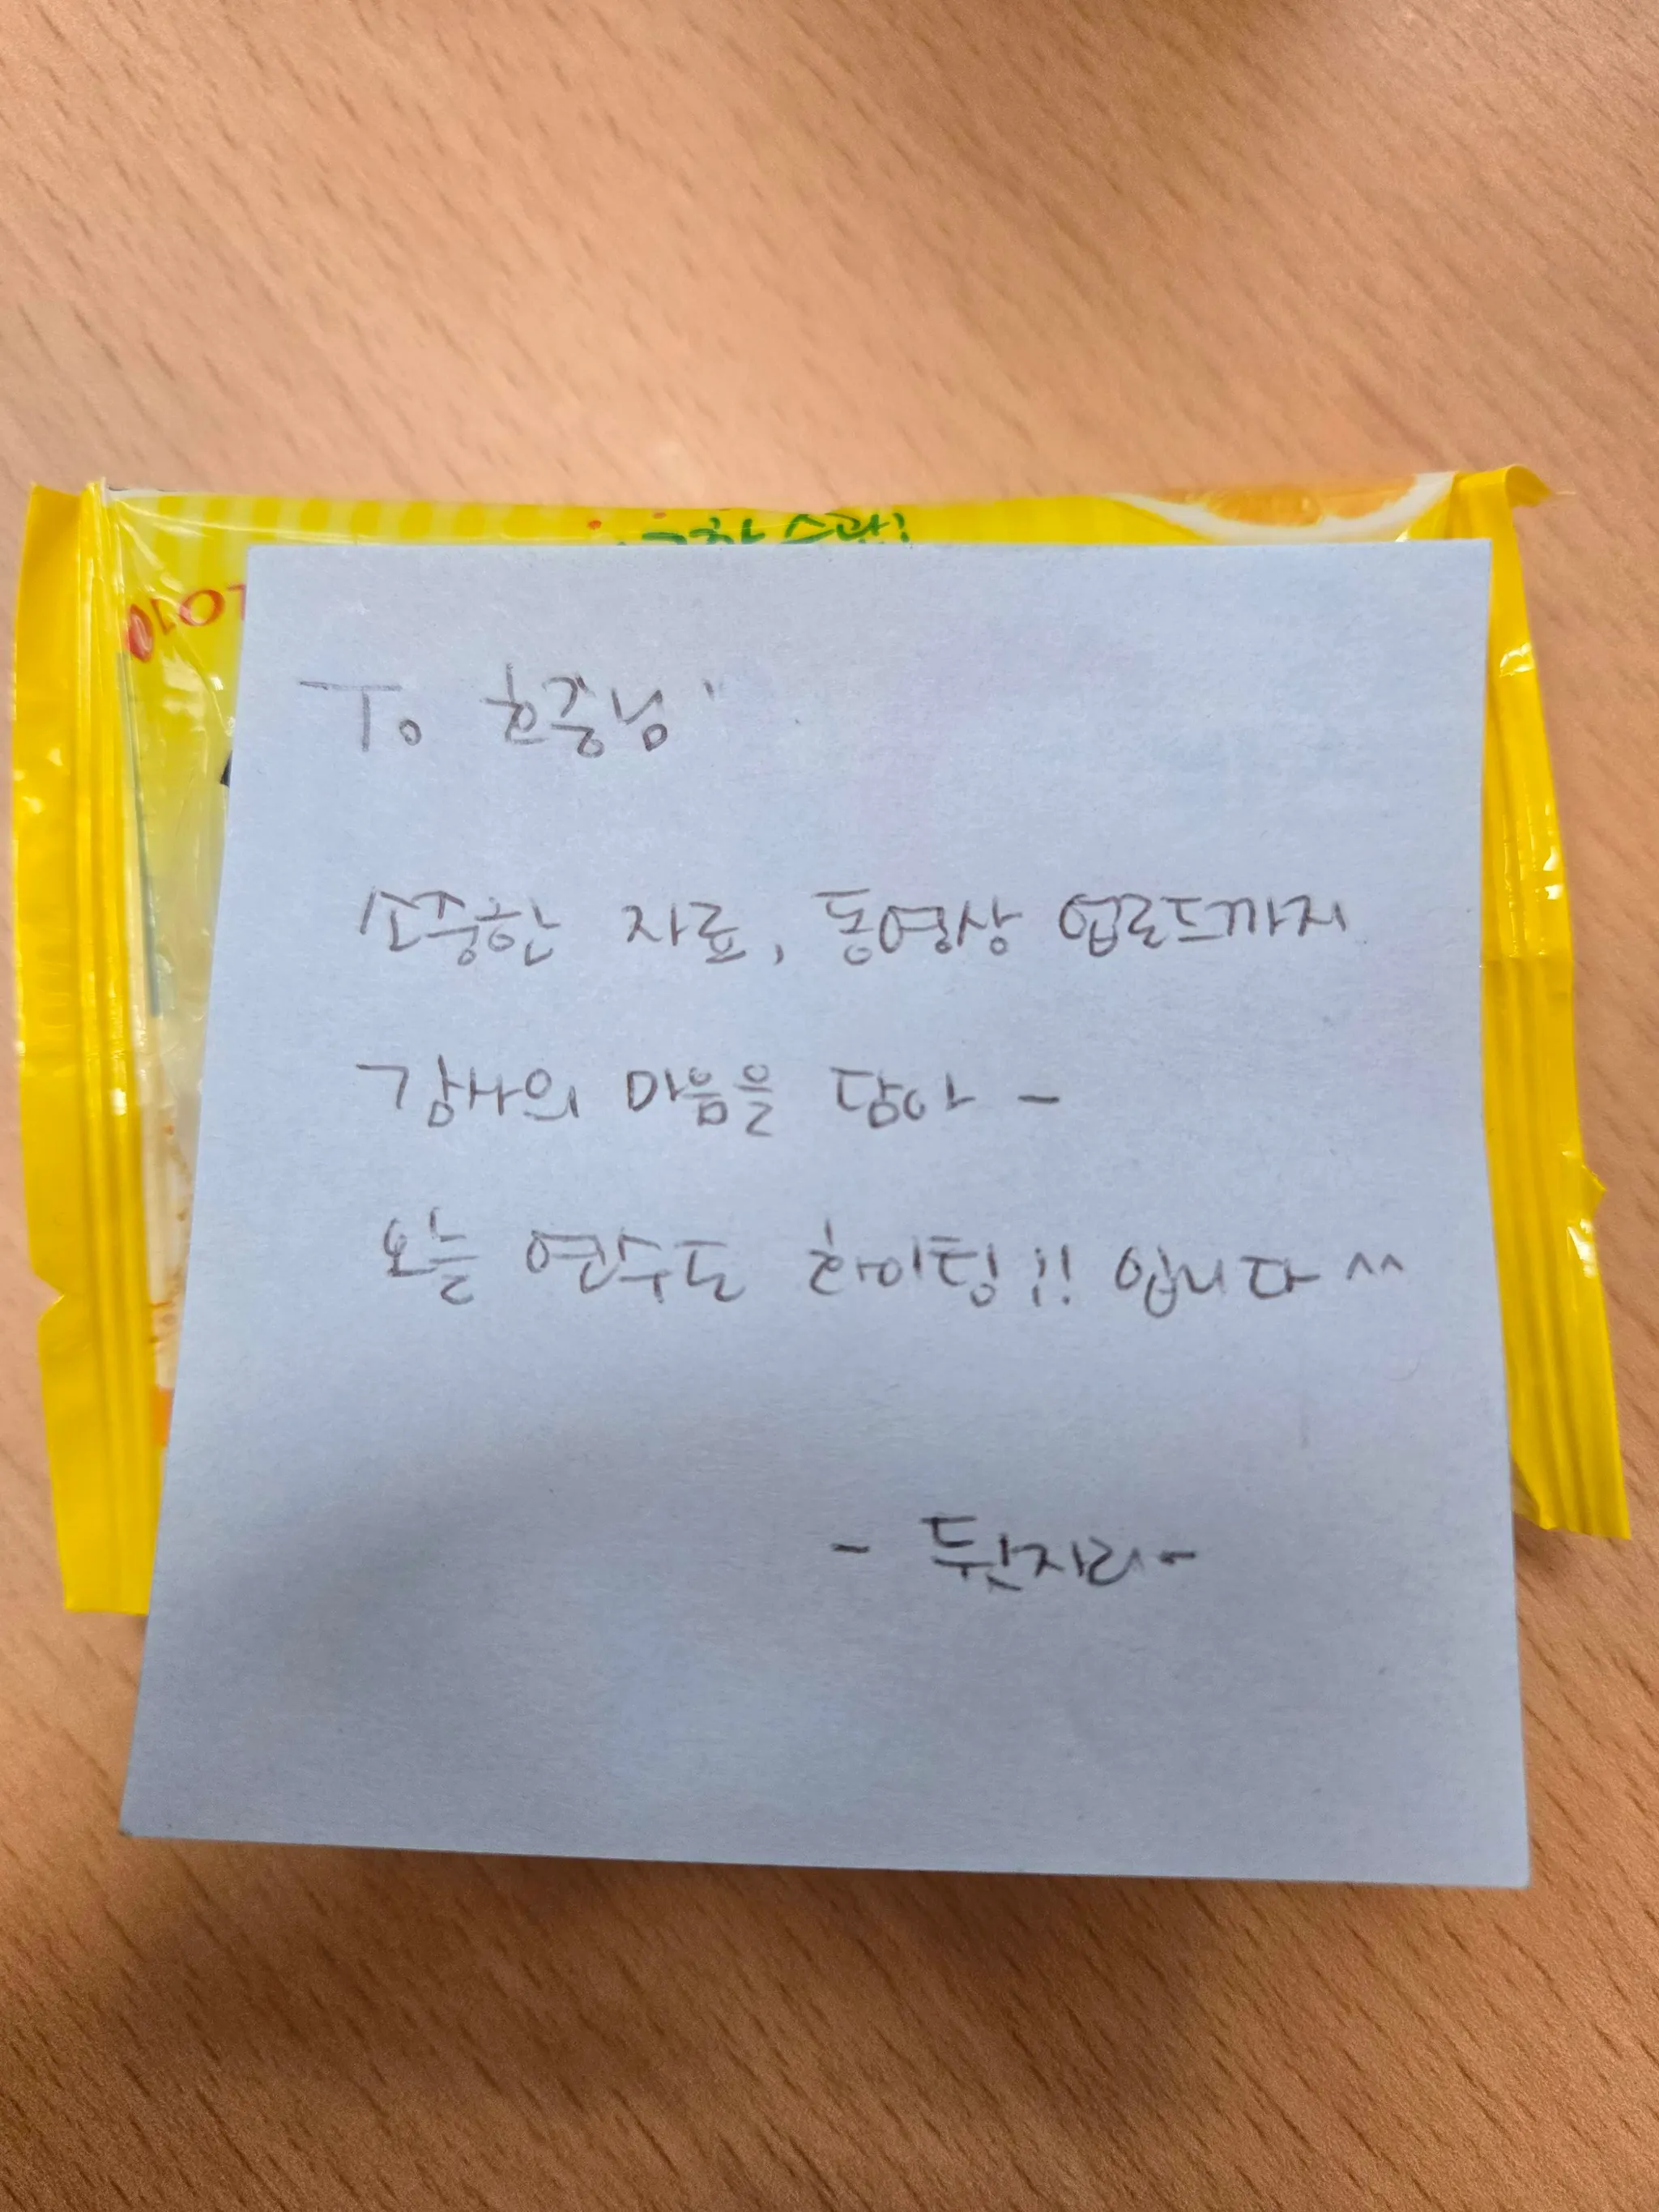 To 효중님
소중한 자료, 동영상 업로드까지
감사의 마음을 담아 -
오늘 연수도 화이팅!! 입니다 ^^
- 뒷자리 -